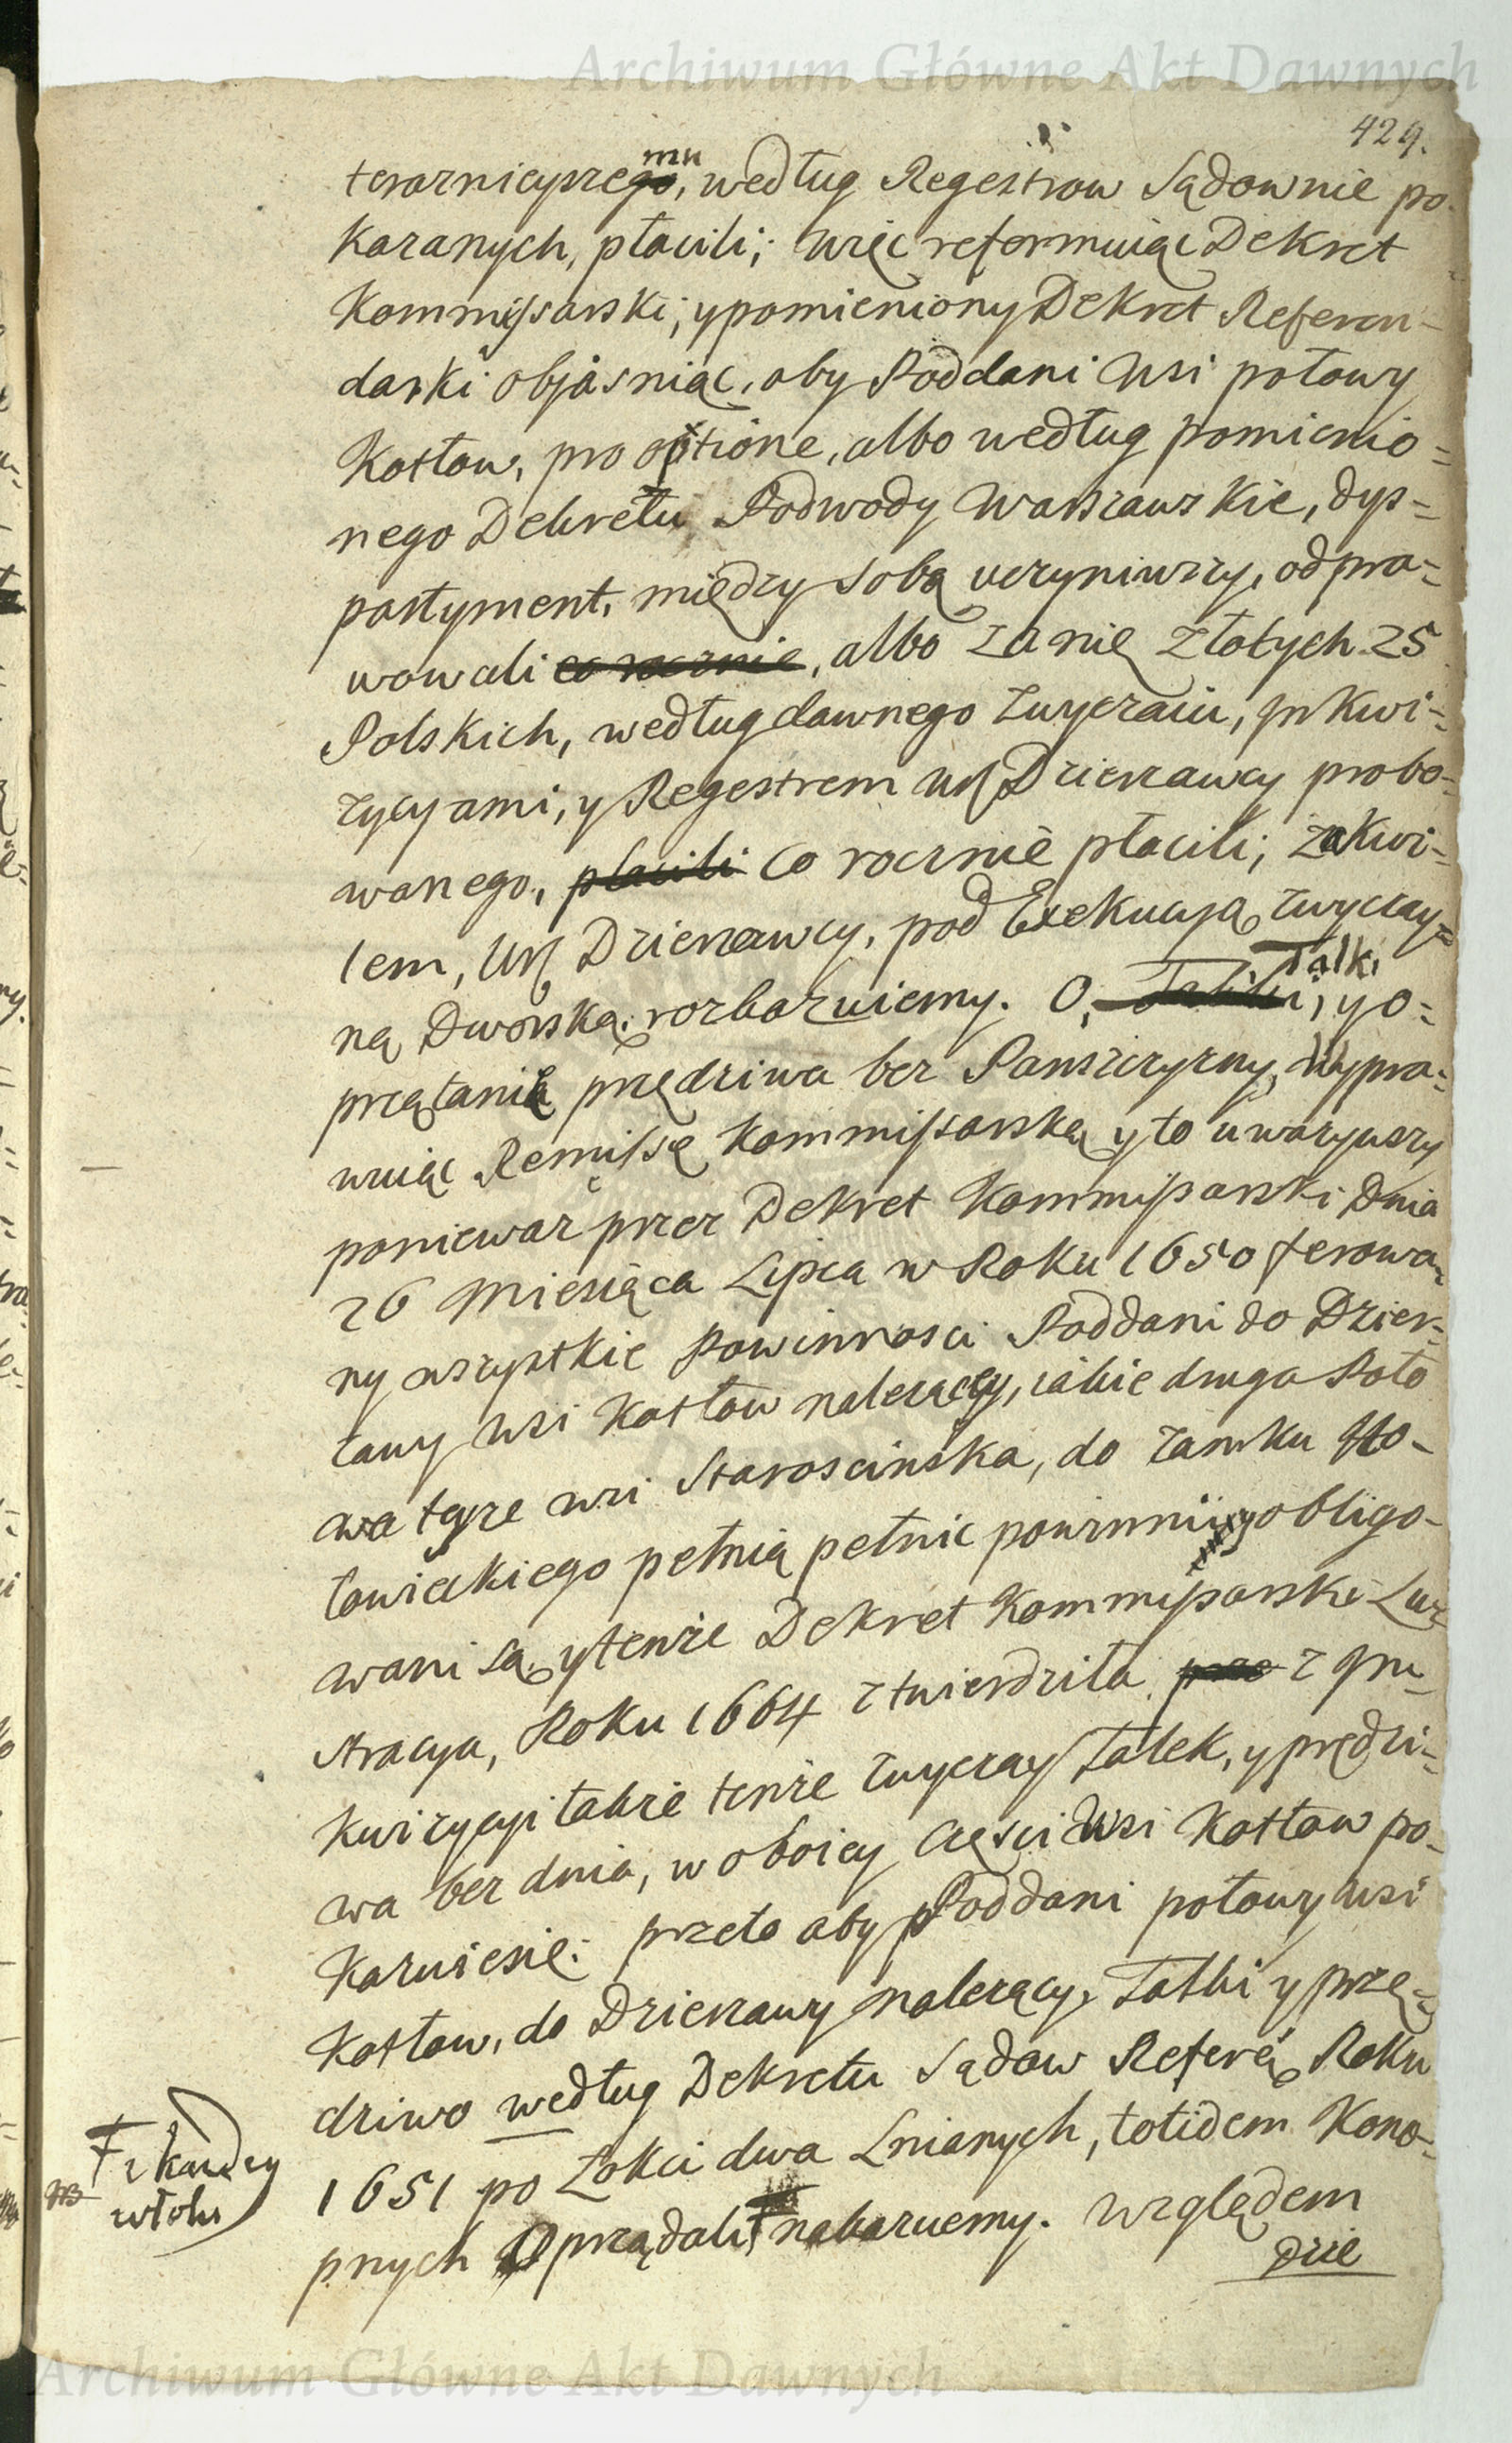 Archiwum Główne Akt Dawnych
429.
teraznieyszegomu, według Regestrow Sądownie po-
kazanych, płacili; więc reformuiąc Dekret
Kommissarski, y pomieniony Dekret Referen-
darki objasniaiąc, aby Poddani wsi połowy
Kotłow, pro optione, albo według pomienio=
nego Dekretu Podwody Warszawskie, dys=
partyment, między sobą uczyniwszy, odpra=
wowali co rocznie, albo za nie Złotych 25
Polskich, według dawnego zwyczaiu, in kwi=
zycyami, y Regestrem Ur. Dzierzawcy probo=
wanego, płacili co rocznie płacili; za kwi=
tem, Ur. Dzierzawcy, pod Exekucyą zwyczay=
ną Dworską, rozkazuiemy. O, Talki, y o=
Talki
przątanie przędziwa bez Panszczyzny, wypra=
wuiąc Remissę Kommissarską y to uwazywszy
poniewaz przez Dekret Kommissarski Dnia
26 Miesiąca Lipca w Roku 1650 ferowa=
ny wszystkie Powinnosci Poddani do Dzier=
zawy wsi Kotłow nalezący, iakie druga Poło
wa teyze wsi Staroscinska, do zamku Sto-
towickiego pełnią pełnic powinni y obligo-
wani są, y tenze Dekret Kommissarski Lu-
stracya, Roku 1664 ztwierdziła, prze z qu
kwizycyi takze tenze zwyczay Talek, y przędzi=
wa bez dnia, w oboiey częsci wsi Kotłow po-
kazuie się: przeto aby Poddani połowy wsi
Kotłow, do Dzierzawy nalezący, Talki y przę=
dziwo według Dekretu Sądow Referen. Roku
1651 po Łokci dwa Lnianych, totidem Kono=
pnych Oprządali, nakazuiemy. Względem
dzie
NB
F z kazdey
włoki
Archiwum Główne Akt Dawnych